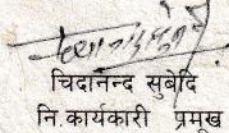 चिदानन्द सुबेदि
नि.कार्यकारी प्रमूख